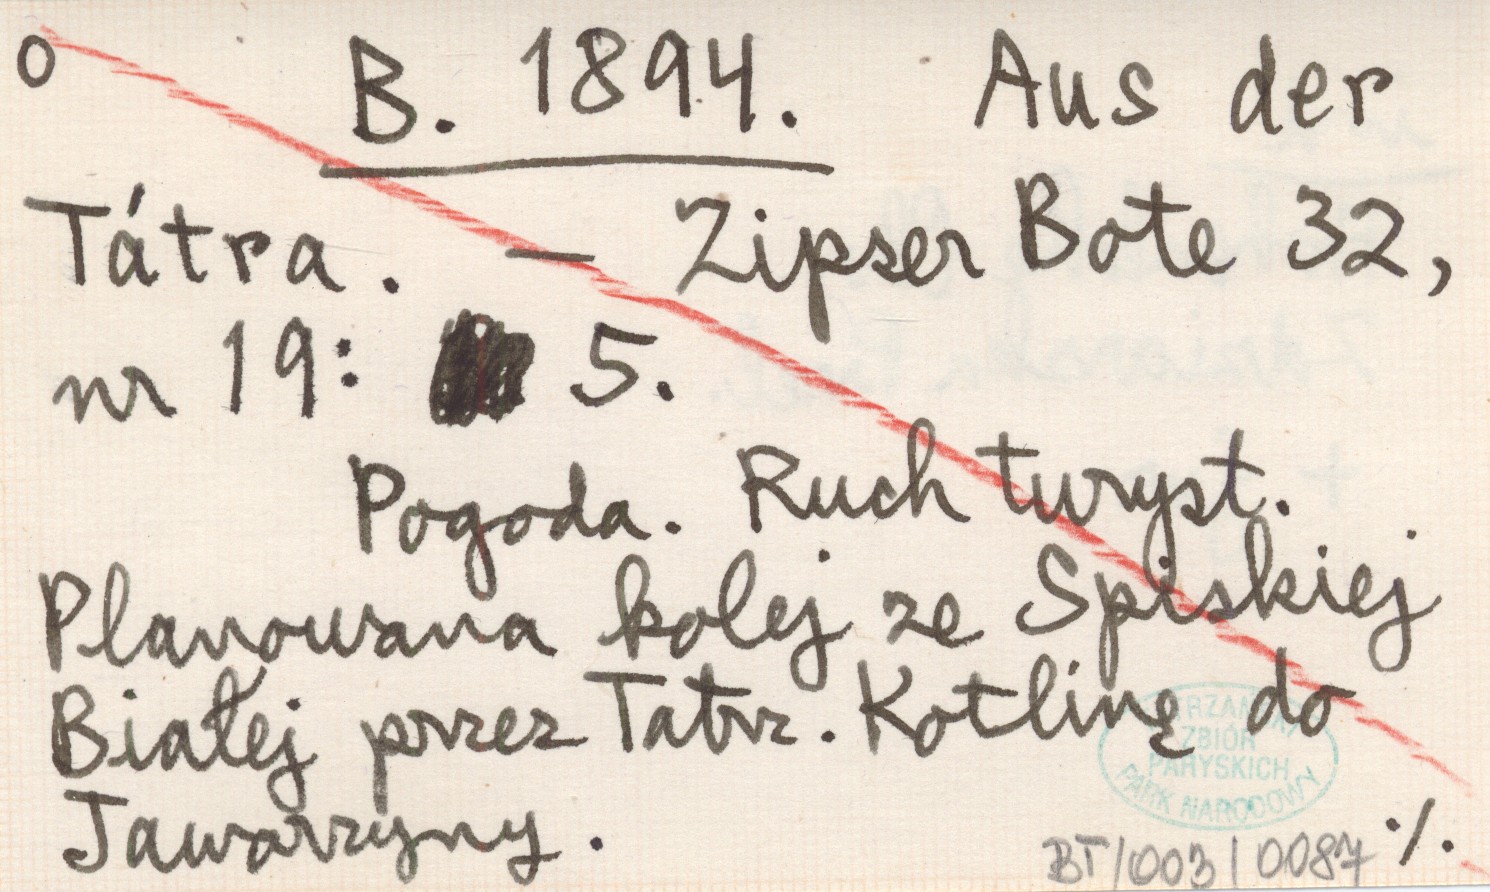 o B. 1894. Aus der
Tátra. — Zipser Bote 32,
nr 19: 5.
Pogoda. Ruch turyst.
Planowana kolej ze Spiskiej
Białej przez Tatrz. Kotlinę do
Jaworzyny.
TATRZAŃSKI
ZBIÓR
PARYSKICH
PARK NARODOWY
BT/003/0087 ·/.